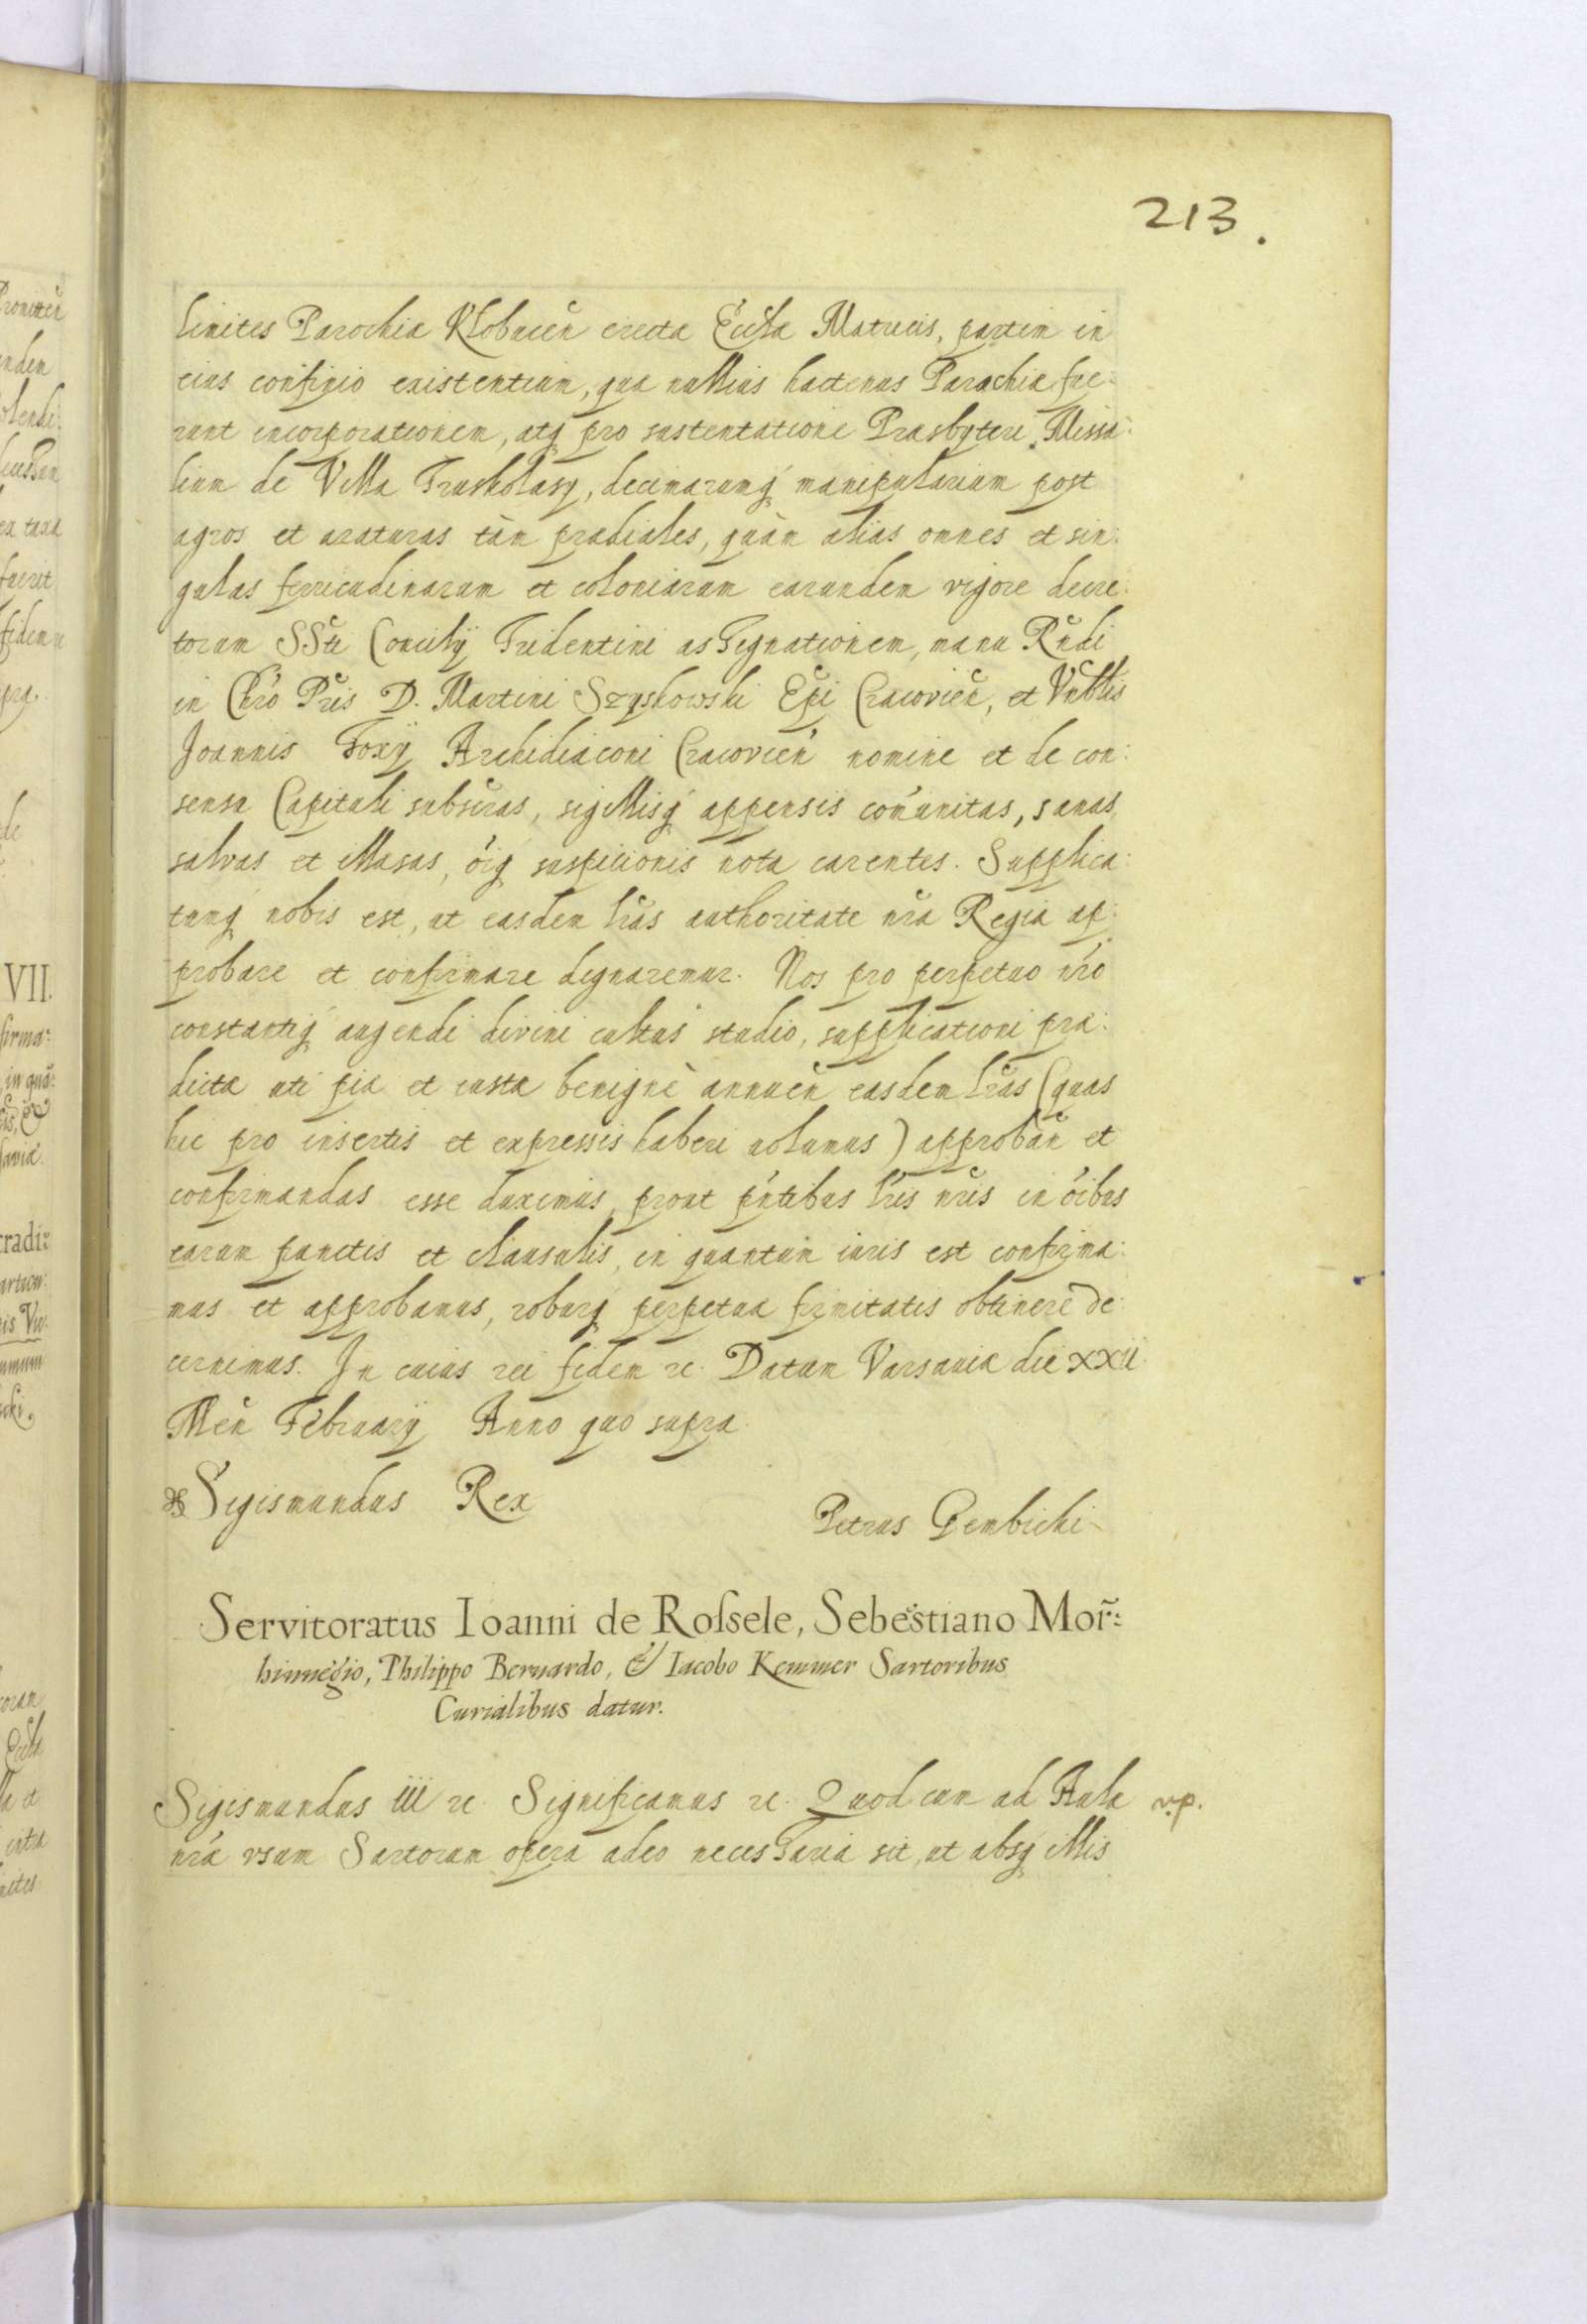 213.
limites Parochiæ Klobucen̄ erectæ Eccl̃æ Matricis, partim in
eius confinio existentium, quæ nullius hactenus Parochiæ fue:
runt incorporationem, atq̨ pro sustentatione Præsbyteri Missa:
lium de Villa Truskolasy, decimarumq̨ manipularium post
agros et araturas tàm prædiales, quàm alias omnes et sin:
gulas ferricudinarum et coloniarum earundem vigore decre:
torum SSti Concilij Tridentini assignationem, manu Rn̄di
in Chr̃o Pr̃is D. Martini Szyskowski Ep̃i Cracovien̄, et Vnblis
Joannis Foxij Archidiaconi Cracovien̄ nomine et de con:
sensu Capituli subscr̃as, sigillisq̨ appensis com̃unitas, sanas
salvas et illæsas, õiq̨ suspicionis nota carentes. Supplica:
tumq̨ nobis est, ut easdem l̃ras authoritate nr̃a Regia ap:
probare et confirmare dignaremur. Nos pro perpetuo nr̃o
constantiq̨ augendi divini cultus studio, supplicationi præ:
dictæ uti piæ et iustæ benignè annuen̄ easdem l̃ras (quas
hic pro insertis et expressis haberi volumus) approban̄ et
confirmandas esse duximus, prout pñtibus l̃ris nr̃is in õibus
earum punctis et clausulis, in quantum iuris est confirma:
mus et approbamus, roburq̨ perpetuæ firmitatis obtinere de:
cernimus. In cuius rei fidem ꝛc. Datum Varsaviæ die XXII
Men̄ Februarij Anno quo supra.
Sigismundus Rex
Petrus Gembicki
Servitoratus Ioanni de Roſsele, Sebestiano Mor̃:
hinnegio, Philippo Bernardo, & Iacobo Kemmer Sartoribus
Curialibus datur.
Sigismundus III ꝛc. Significamus ꝛc. Quod cum ad Aulæ
nr̃æ usum Sartorum opera adeo necessaria sit, ut absq̨ illis
v.p.